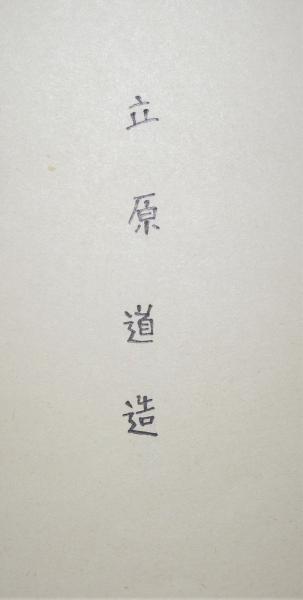 立原道造